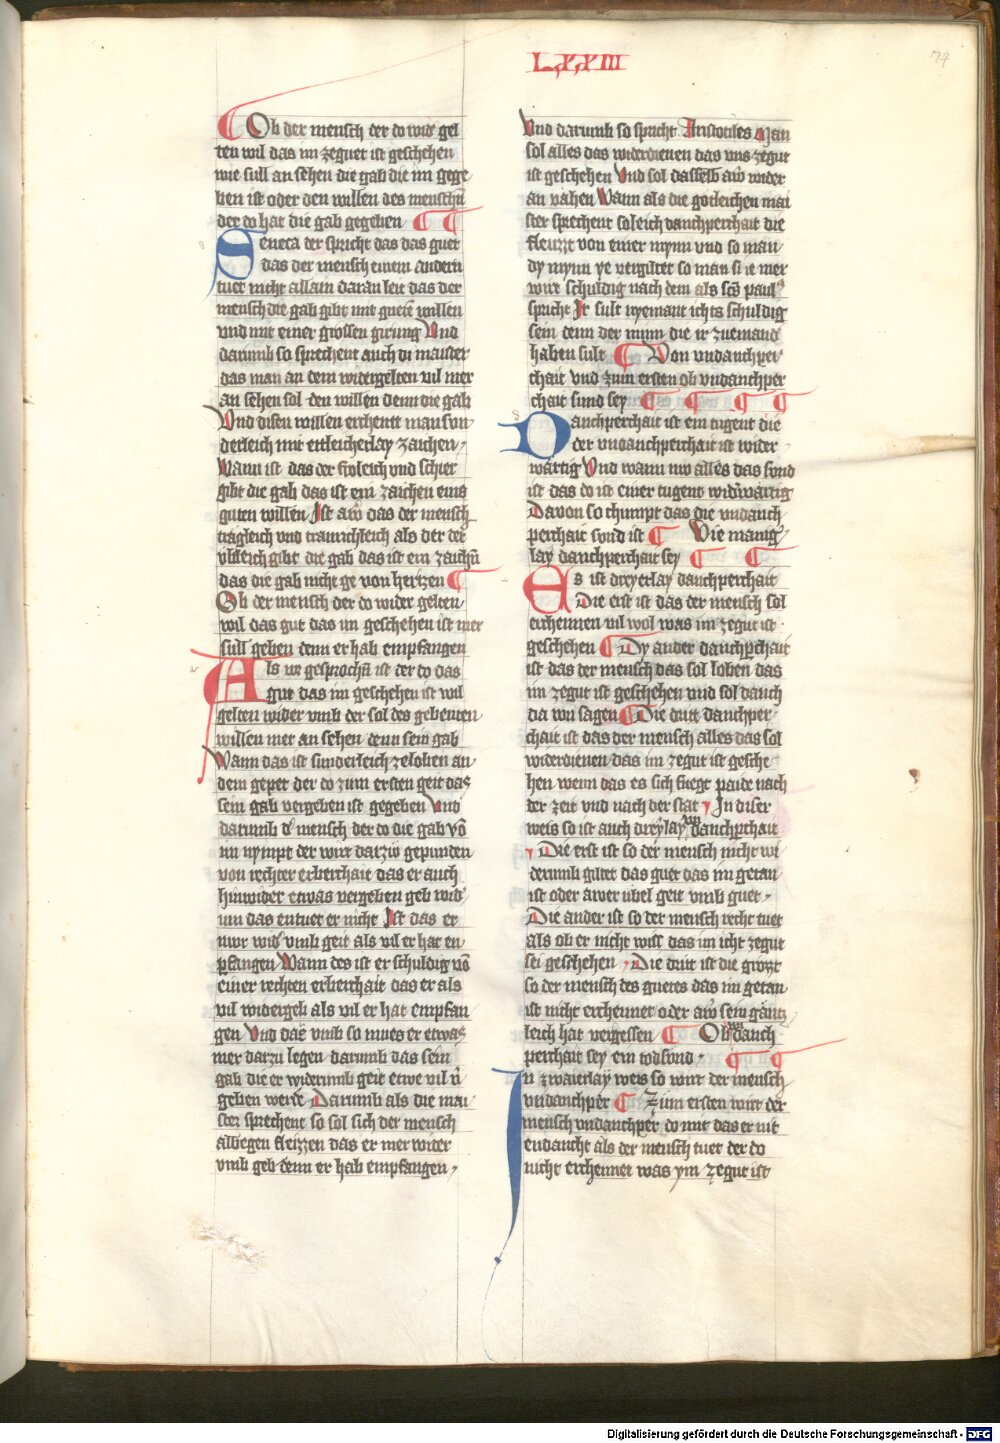 LXXIII
74
Ob der mensch der do wider gel
ten wil das im zeguet ist geschehen
wie sull an sehen die gab die im gege
ben ist oder den willen des menschn̄
der do hat die gab gegeben
Seneca der spricht das das guet
das der mensch einem andern
tuet nicht allain daran leit das der
mensch die gab gibt mit guetē willen
vnd mit einer grossen girung Vnd
darumb so sprechent auch di maister
das man an dem widergelten vil mer
an sehen sol den willen denn die gab
Vnd disen willen erchennt man sun
derleich mit etleicherlay zaichen
Wann ist das der froleich vnd schier
gibt die gab das ist ein zaichen eins
guten willen Ist aw̄ das der mensch
trägleich vnd traurichleich als der
vbleich gibt die gab das ist ein zaichn̄
das die gab nicht ge von hertzen
Ob der mensch der do wider gelten
wil das gut das im geschehen ist mer
sull geben denn er hab empfangen
Als we gesprochn̄ ist der do das
gut das im geschehen ist wil
gelten wider vmb der sol des gebenten
willen mer an sehen denn sein gab
Wann das ist sunderleich zeloben an
dem geper der do zum ersten geit das
sein gab vergeben ist gegeben Vnd
darumb d' mensch der do die gab vō
im nympt der wirt darzw gepunden
von rechter erberchait das er auch
hinwider etwas vergeben geb wird
nun das entuet er nicht Ist das er
nwr wid' vmb geit als vil er hat en
pfangen Wann des ist er schuldig vō
einer rechten erberchait das er als
vil widergelt als vil er hat empfan
gen Vnd vmb so mues er etwas
mer darzu legen darumb das sein
gab die er widerumb geit etwe vil
geben werde Darumb als die mai
ster sprechent so sol sich der mensch
albegen fleizzen das er mer wider
vmb geb denn er hab empfangen
Vnd darumb so spricht Aristotiles Man
sol alles das widerdienen das vns zegut
ist geschehen Vnd sol dasselb aw̄ wider
an vahen Wann als die gotleichen mai
ster sprechent so leich danchperchait die
fleuzzt von einer mynn vnd so man
dy mynn ye vergiltet so man si ie mer
wirt schuldig nach dem als sc̄s paul9
spricht Ir sult nyemant ichts schuldig
sein denn der minn die ir zueinand'
haben sult Von vndanchper
chait vnd zum ersten ob vndanchper
chait sund sey
Danchperchait ist ein tugent die
der vndanchperchait ist wider
wärtig Vnd wann nw alles das sund
ist das do ist einer tugent wid'wärtig
Davon so chumpt das die vndanch
perchait sund ist Wie manig
lay danchperchait sey
Es ist dreyerlay danchperchait
Die erst ist das der mensch sol
erchennen vil wol was im zegut ist
geschehen Dy ander danchp̄chait
ist das der mensch das sol loben das
im zegut ist geschehen vnd sol danch
da von sagen Die drit danchper
chait ist das der mensch alles das sol
widerdienen das im zegut ist gesche
hen wenn das es sich fuegt paide nach
der zeit vnd nach der stat In diser
weis so ist auch dreylay vndanchp̄chait
Die erst ist so der mensch nicht wi
derumb giltet das guet das im getan
ist oder awer übel geit vmb guet
Die ander ist so der mensch recht tuet
als ob er nicht wist das im icht zegut
sei geschehen Die drit ist die grözzt
so der mensch des guetes das im getan
ist nicht erchennet oder aw̄ sein gäntz
leich hat vergessen Ob vndanch
perchait sey ein todsund
In zwaierlay weis so wirt der mensch
vndanchper Zum ersten wirt der
mensch vndanchper do mit das er nit
endancht als der mensch tuet der do
nicht erchennet was ym zegut ist
Digitalisierung gefördert durch die Deutsche Forschungsgemeinschaft - DFG